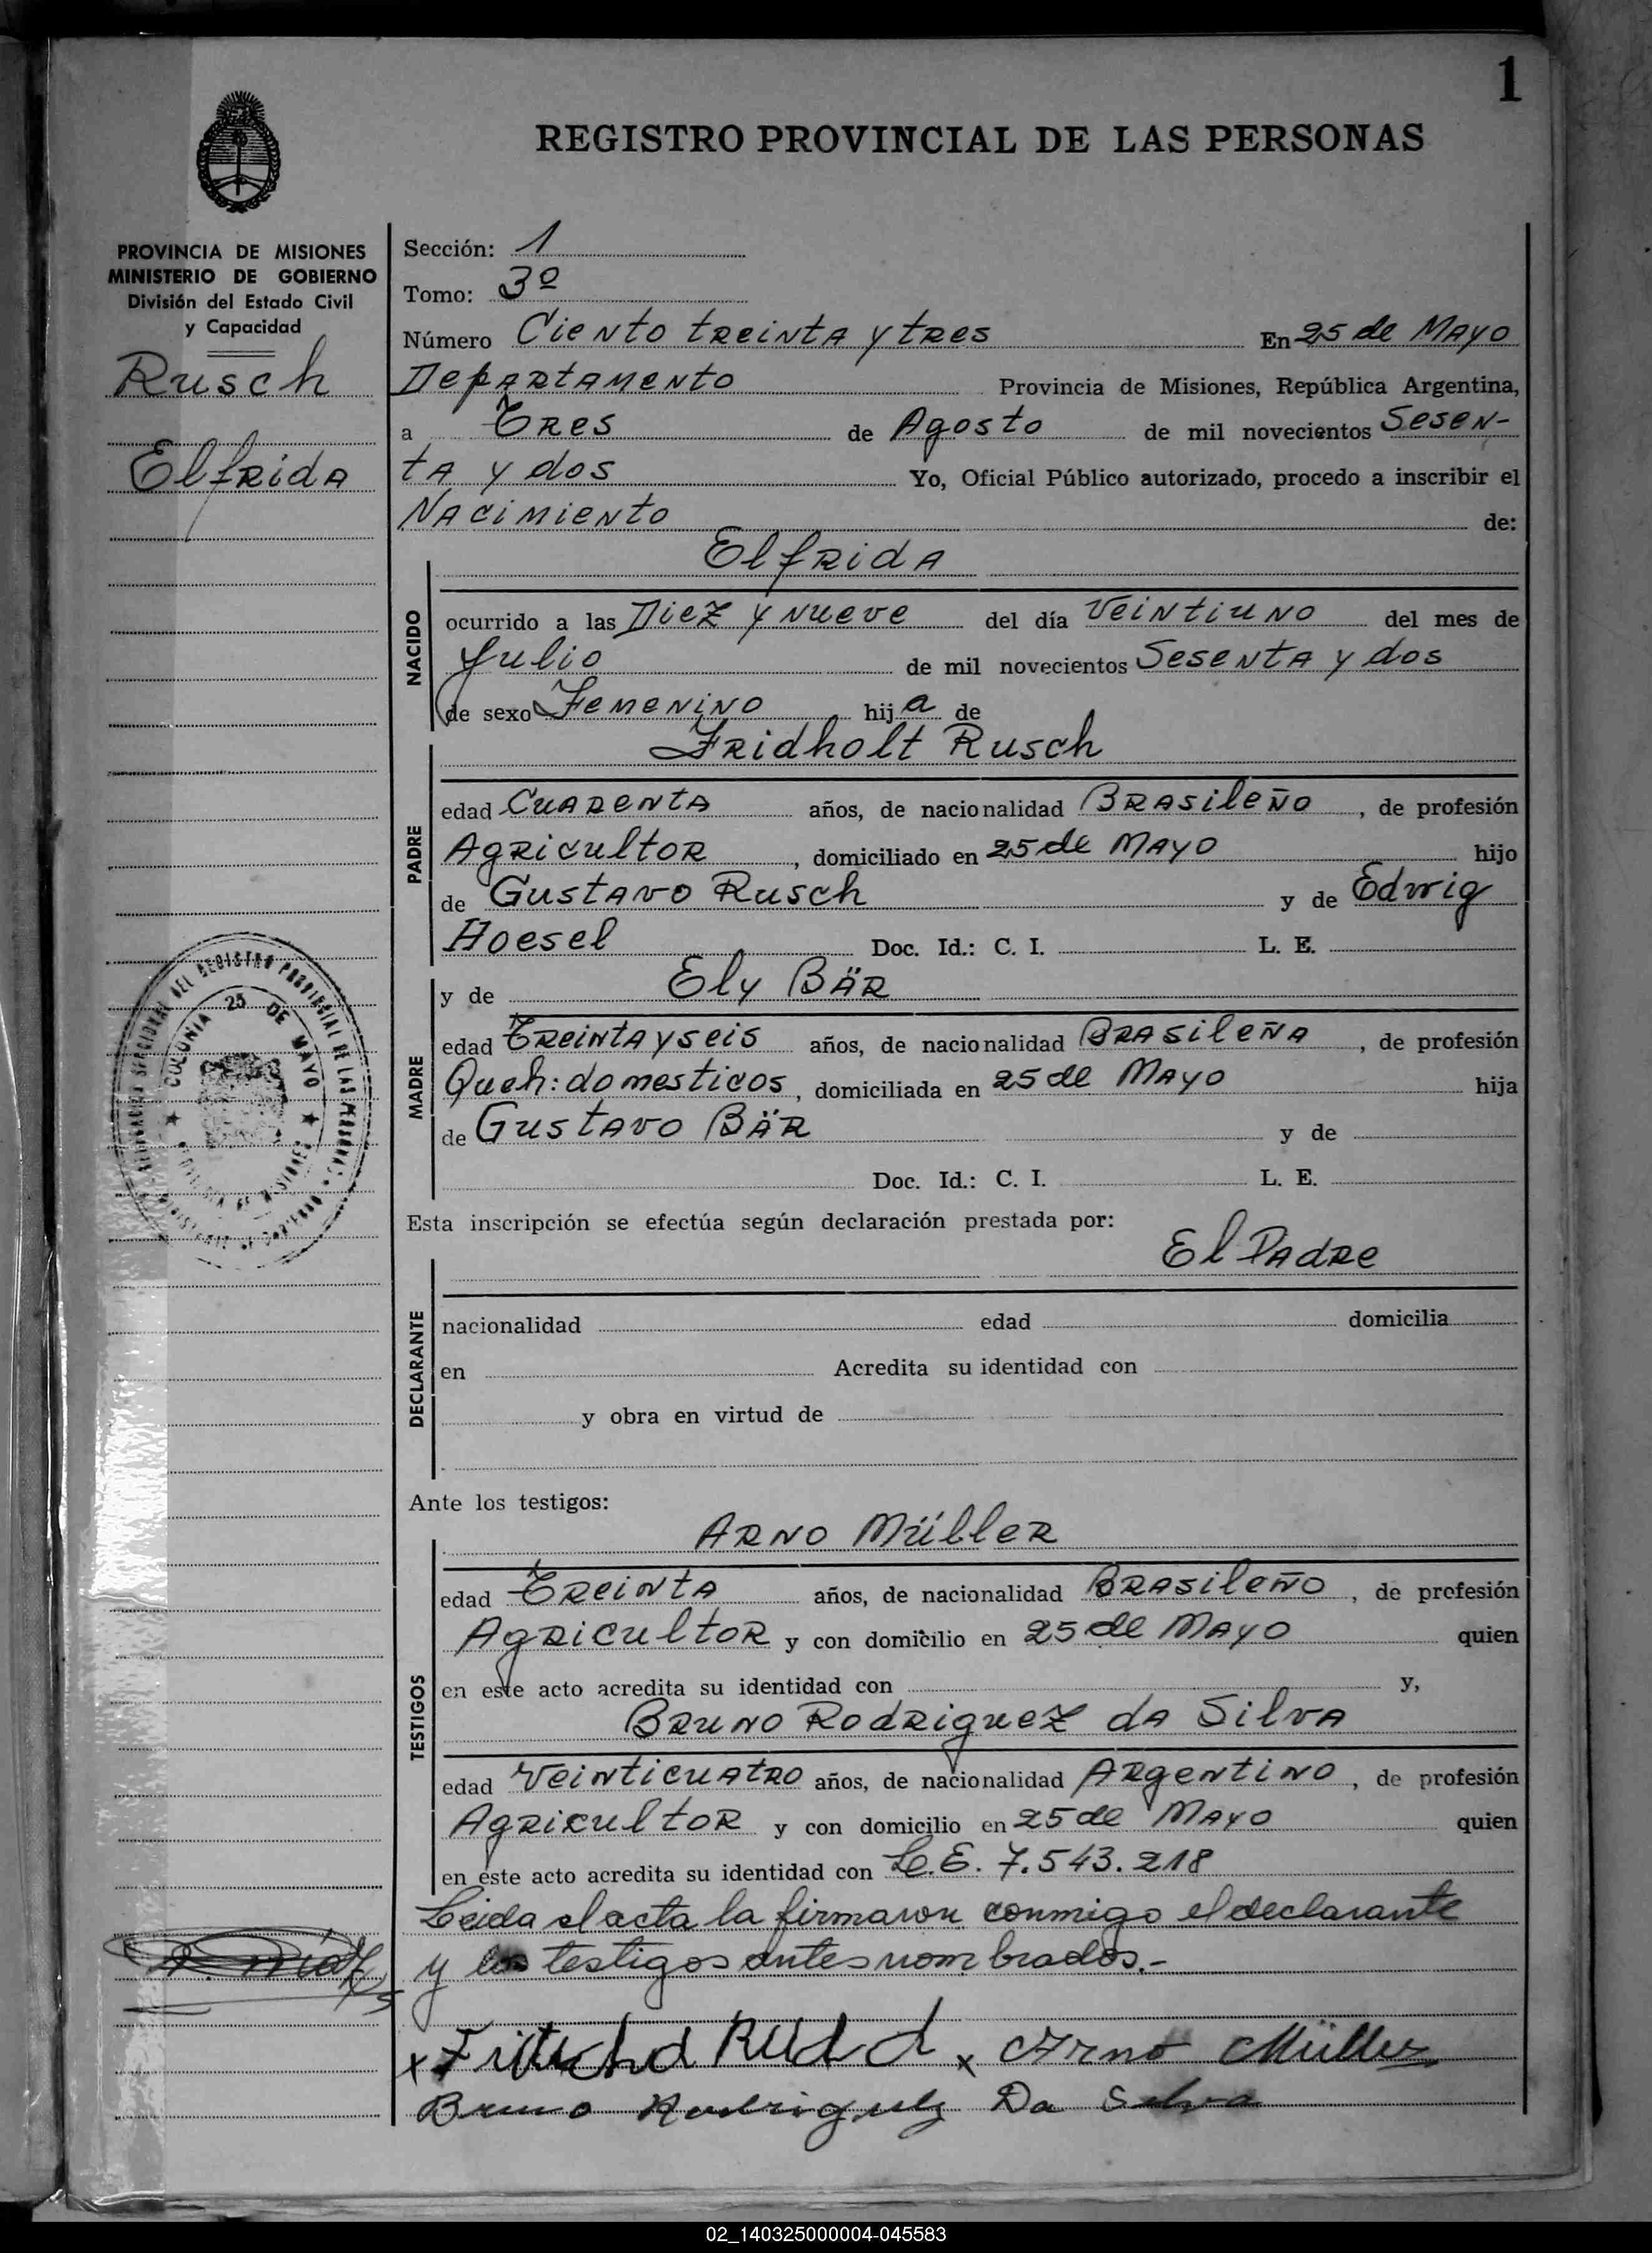 1
REGISTRO PROVINCIAL DE LAS PERSONAS
PROVINCIA DE MISIONES
MINISTERIO DE GOBIERNO
División del Estado Civil
y Capacidad
Rusch
Elfrida
COLONIA 25 DE MAYO
Sección: 1
Tomo: 3º
Número Ciento treinta y tres En 25 de Mayo
Departamento Provincia de Misiones, República Argentina,
a Tres de Agosto de mil novecientos Sesen-
ta y dos Yo, Oficial Público autorizado, procedo a inscribir el
Nacimiento de:
Elfrida
NACIDO
ocurrido a las Diez y nueve del día Veintiuno del mes de
Julio de mil novecientos Sesenta y dos
de sexo Femenino hija de
Fridholt Rusch
PADRE
edad Cuarenta años, de nacionalidad Brasileño, de profesión
Agricultor, domiciliado en 25 de Mayo hijo
de Gustavo Rusch y de Edwig
Hoesel Doc. Id.: C. I. L. E.
y de Ely Bär
MADRE
edad Treinta y seis años, de nacionalidad Brasileña, de profesión
Queh: domesticos, domiciliada en 25 de Mayo hija
de Gustavo Bär y de
Doc. Id.: C. I. L. E.
Esta inscripción se efectúa según declaración prestada por:
El Padre
DECLARANTE
nacionalidad edad domicilia
en Acredita su identidad con
y obra en virtud de
Ante los testigos:
Arno Müller
TESTIGOS
edad Treinta años, de nacionalidad Brasileño, de profesión
Agricultor y con domicilio en 25 de Mayo quien
en este acto acredita su identidad con y,
Bruno Rodriguez da Silva
edad Veinticuatro años, de nacionalidad Argentino, de profesión
Agricultor y con domicilio en 25 de Mayo quien
en este acto acredita su identidad con L.E. 7.543.218
Leida el acta la firmaron conmigo el declarante
y los testigos antes nombrados.-
x x Arno Müller
Bruno Rodriguez Da Silva
02_140325000004-045583